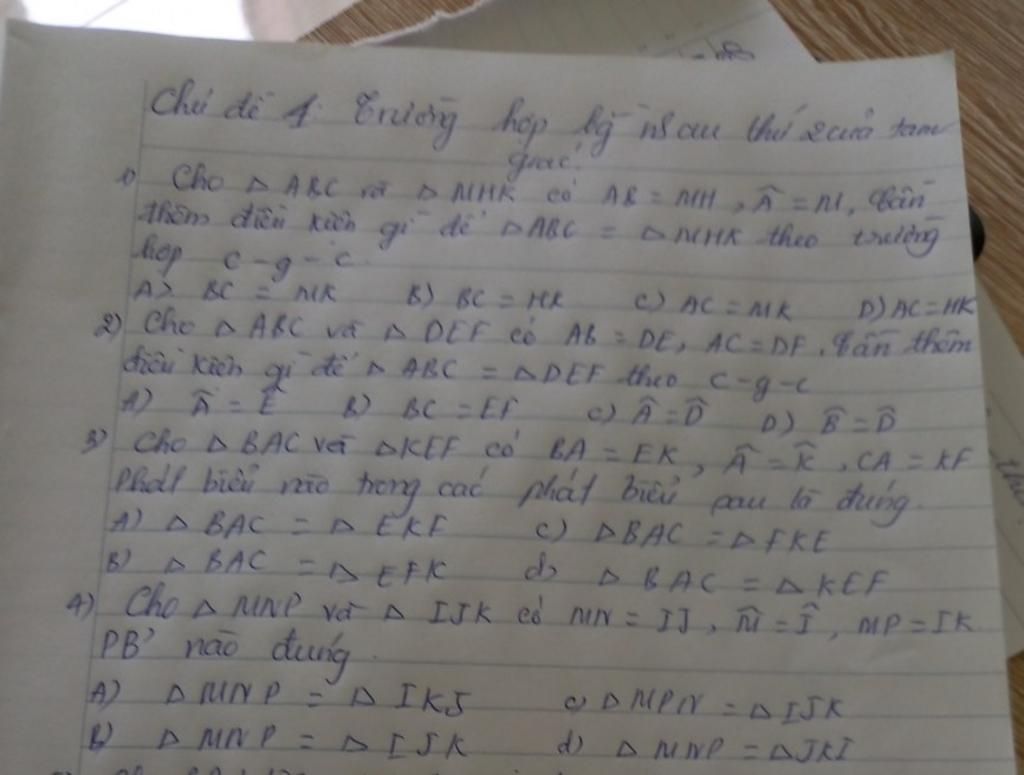 Chủ đề 1: Trường hợp bằng nhau thứ 2 của tam
giác.
1) Cho △ABC và △MHK có AB = MH, Â = M̂. Cần
thêm điều kiện gì để △ABC = △MHK theo trường
hợp c-g-c.
A) BC = MK B) BC = HK C) AC = MK D) AC = HK
2) Cho △ABC và △DEF có AB = DE, AC = DF. Cần thêm
điều kiện gì để △ABC = △DEF theo c-g-c
A) Â = Ê B) BC = EF C) Â = D̂ D) B̂ = D̂
3) Cho △BAC và △KEF có BA = EK, Â = K̂, CA = KF
Phát biểu nào trong các phát biểu sau là đúng.
A) △BAC = △EKF C) △BAC = △FKE
B) △BAC = △EFK d) △BAC = △KEF
4) Cho △MNP và △IJK có MN = IJ, M̂ = Î, MP = IK
PB' nào đúng.
A) △MNP = △IKJ c) △MPN = △IJK
B) △MNP = △IJK d) △MNP = △JKI